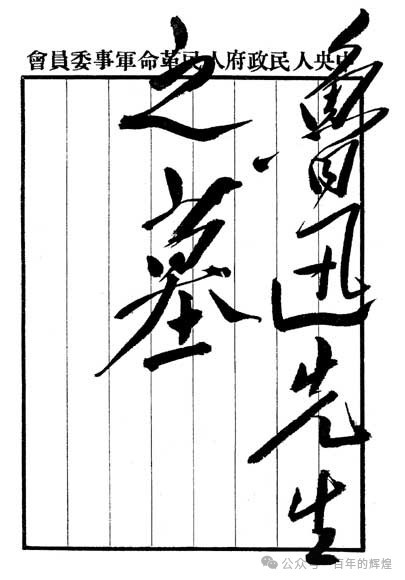 中央人民政府人民革命軍事委員會
魯迅先生
之墓
公众号·百年的辉煌